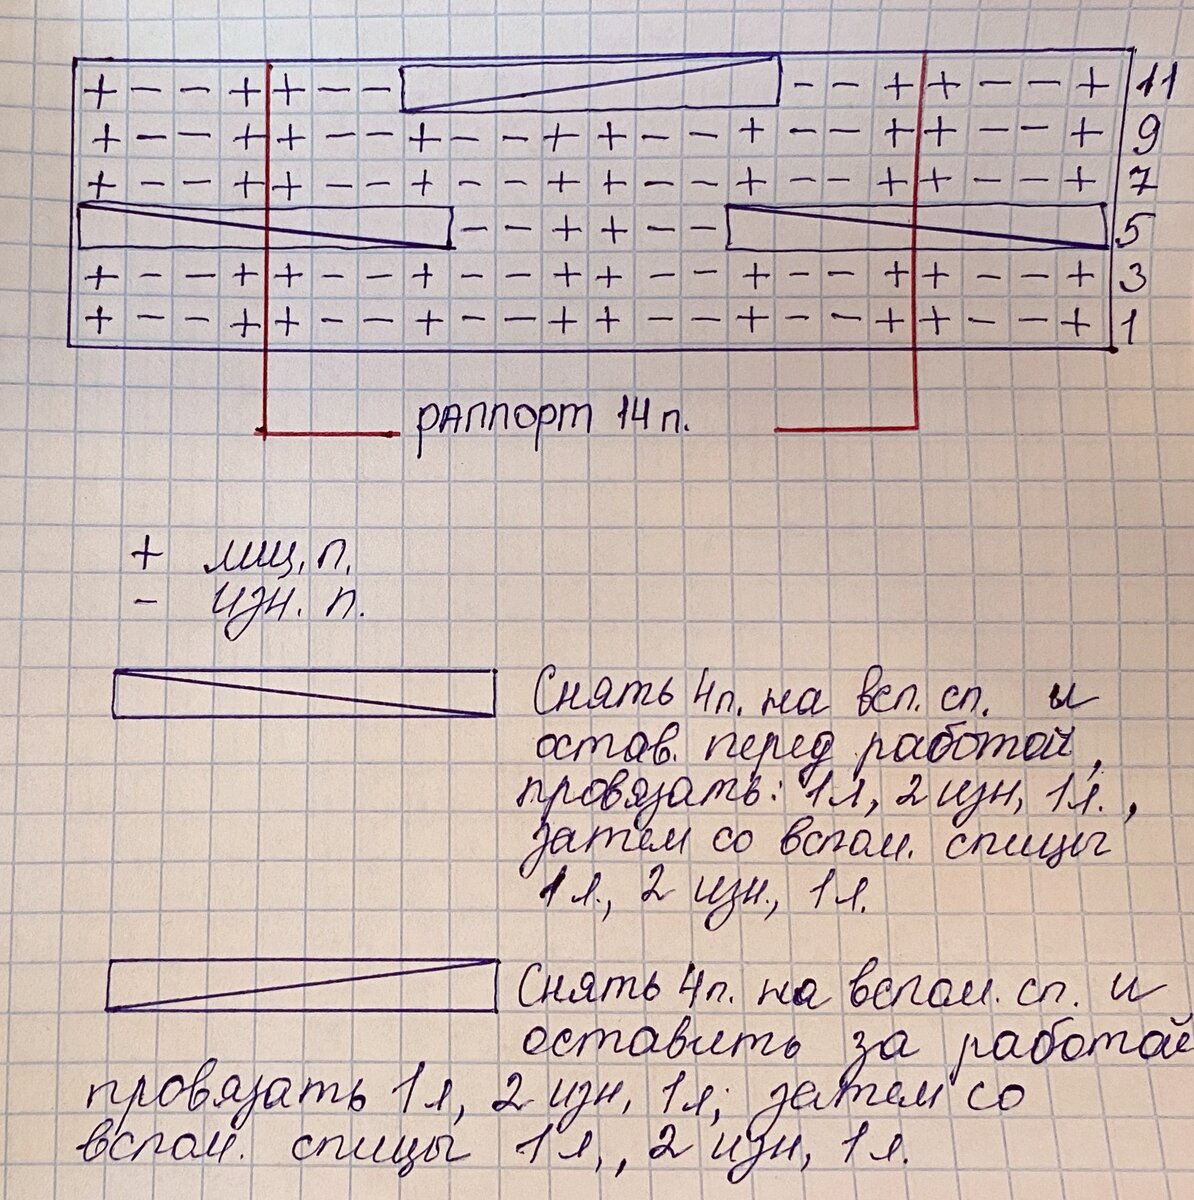 + - - + + - - - - + + - - + 11
+ - - + + - - + - - + + - - + - - + + - - + 9
+ - - + + - - + - - + + - - + - - + + - - + 7
- - + + - - 5
+ - - + + - - + - - + + - - + - - + + - - + 3
+ - - + + - - + - - + + - - + - - + + - - + 1
раппорт 14 п.
+ лиц. п.
- изн. п.
Снять 4п. на всп. сп. и
остав. перед работой,
провязать: 1л, 2 изн, 1л.,
затем со вспом. спицы
1л., 2 изн., 1л.
Снять 4п. на вспом. сп. и
оставить за работой
провязать 1л, 2 изн, 1л; затем со
вспом. спицы 1л., 2 изн, 1л.